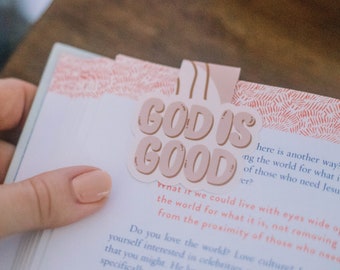 GOD IS
GOOD
here is another way?
ng the world for what it is,
of those who need Jesus
What if we could live with eyes wide op
the world for what it is, not removing
from the proximity of those who need
Do you love the world? Love cultures,
yourself interested in celebrities
that you might. He
specifically